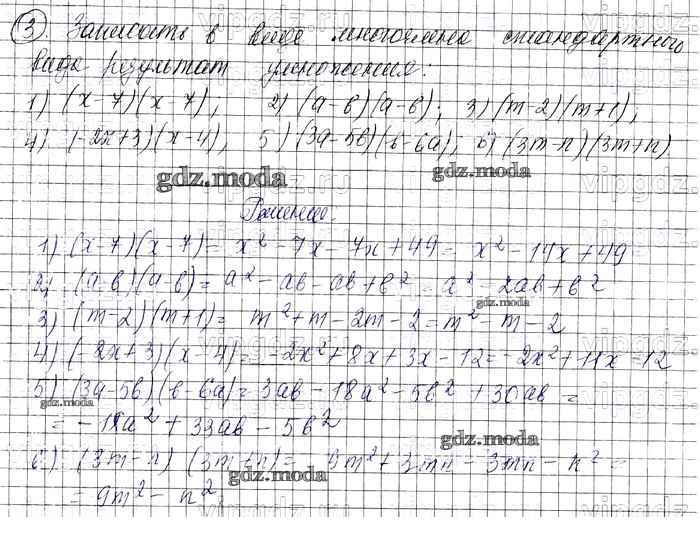 3. Записать в виде многочлена стандартного
вида результат умножения:
1) (x-7)(x-7), 2) (a-b)(a-b); 3) (m-2)(m+1),
4) (-2x+3)(x-4), 5) (3a-5b)(b-6a); 6) (3m-n)(3m+n).
gdz.moda gdz.moda
Решение:
1) (x-7)(x-7) = x² - 7x - 7x + 49 = x² - 14x + 49
2) (a-b)(a-b) = a² - ab - ab + b² = a² - 2ab + b²
gdz.moda
3) (m-2)(m+1) = m² + m - 2m - 2 = m² - m - 2
4) (-2x+3)(x-4) = -2x² + 8x + 3x - 12 = -2x² + 11x - 12
5) (3a-5b)(b-6a) = 3ab - 18a² - 5b² + 30ab =
gdz.moda
= -18a² + 33ab - 5b²
gdz.moda
6) (3m-n)(3m+n) = 9m² + 3mn - 3mn - n² =
gdz.moda
= 9m² - n²